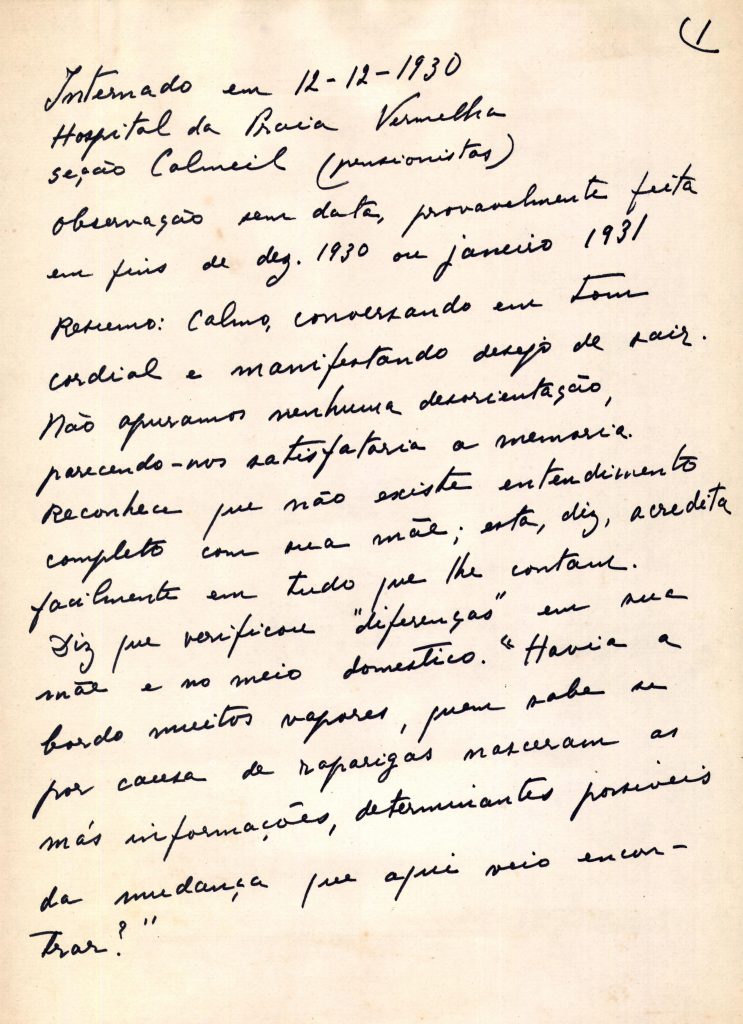 1
Internado em 12-12-1930
Hospital da Praia Vermelha
Seção Calmeil (pensionistas)
Observação sem data, provavelmente feita
em fins de dez. 1930 ou janeiro 1931
Resumo: Calmo, conversando em tom
cordial e manifestando desejo de sair.
Não apuramos nenhuma desorientação,
parecendo-nos satisfatoria a memoria.
Reconhece que não existe entendimento
completo com sua mãe; esta, diz, acredita
facilmente em tudo que lhe contam.
Diz que verificou "diferenças" em sua
mãe e no meio domestico. "Havia a
bordo muitos vapores, quem sabe se
por causa de raparigas nasceram as
más informações, determinantes possiveis
da mudança que aqui veio encon-
trar?"